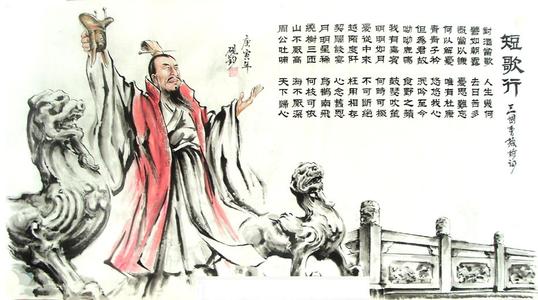 短歌行
對酒當歌 人生幾何
譬如朝露 去日苦多
慨當以慷 憂思難忘
何以解憂 唯有杜康
青青子衿 悠悠我心
但為君故 沉吟至今
呦呦鹿鳴 食野之蘋
我有嘉賓 鼓瑟吹笙
明明如月 何時可掇
憂從中來 不可斷絕
越陌度阡 枉用相存
契闊談宴 心念舊恩
月明星稀 烏鵲南飛
繞樹三匝 何枝可依
山不厭高 海不厭深
周公吐哺 天下歸心
庚寅年